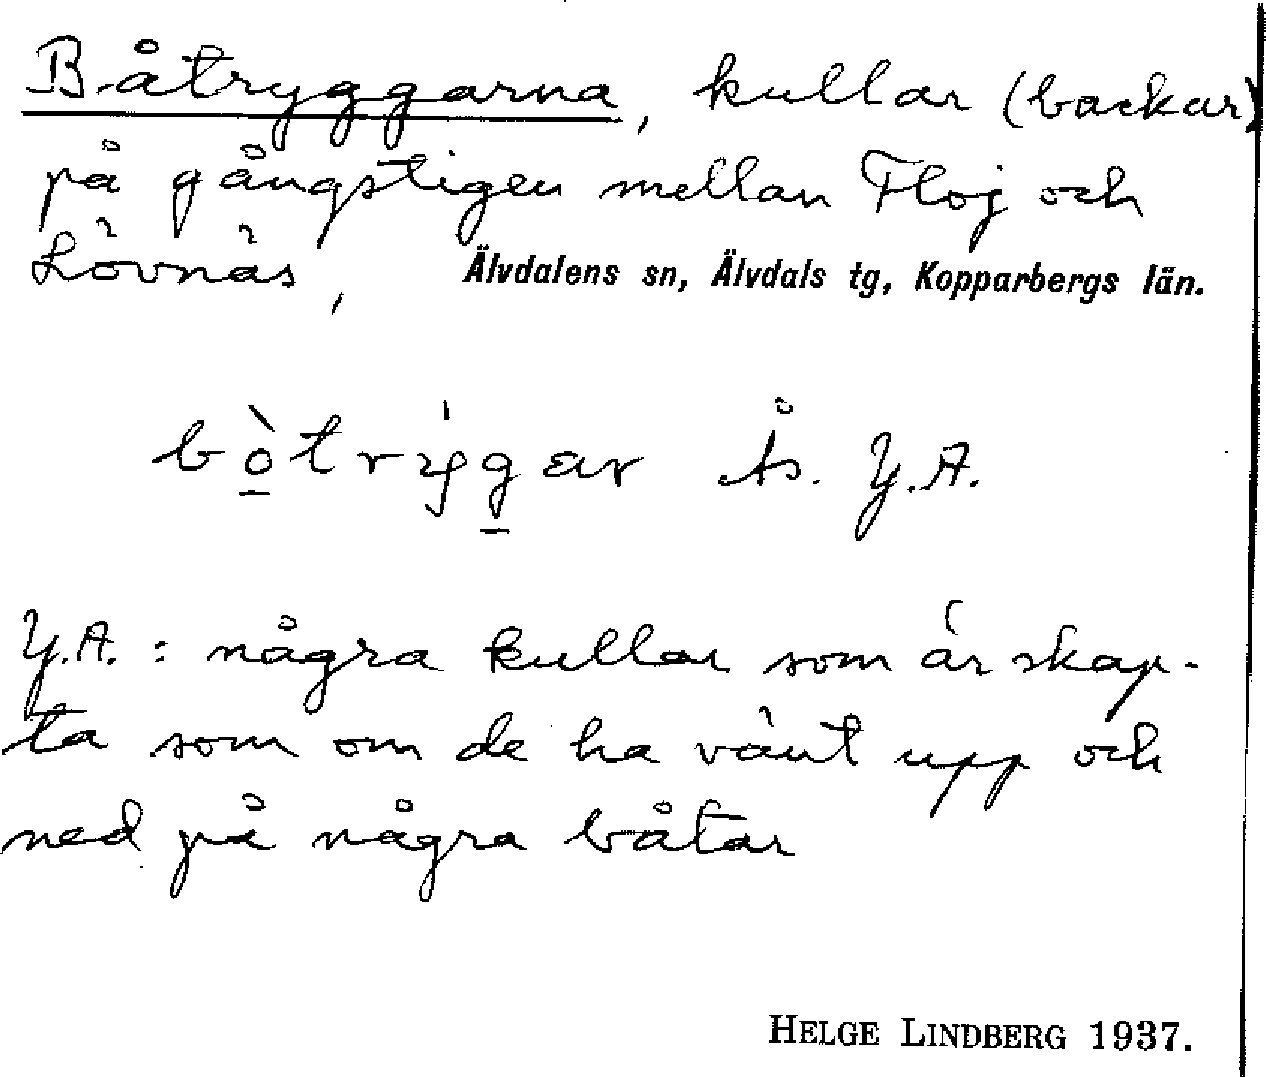 Båtryggarna, kullar (backar)
på gångstigen mellan Floj och
Lövnäs, Älvdalens sn, Älvdals tg, Kopparbergs län.
bò̱trýg̱ar Ås. Y.A.
Y.A. : några kullar som är skap-
ta som om de ha vänt upp och
ned på några båtar
HELGE LINDBERG 1937.